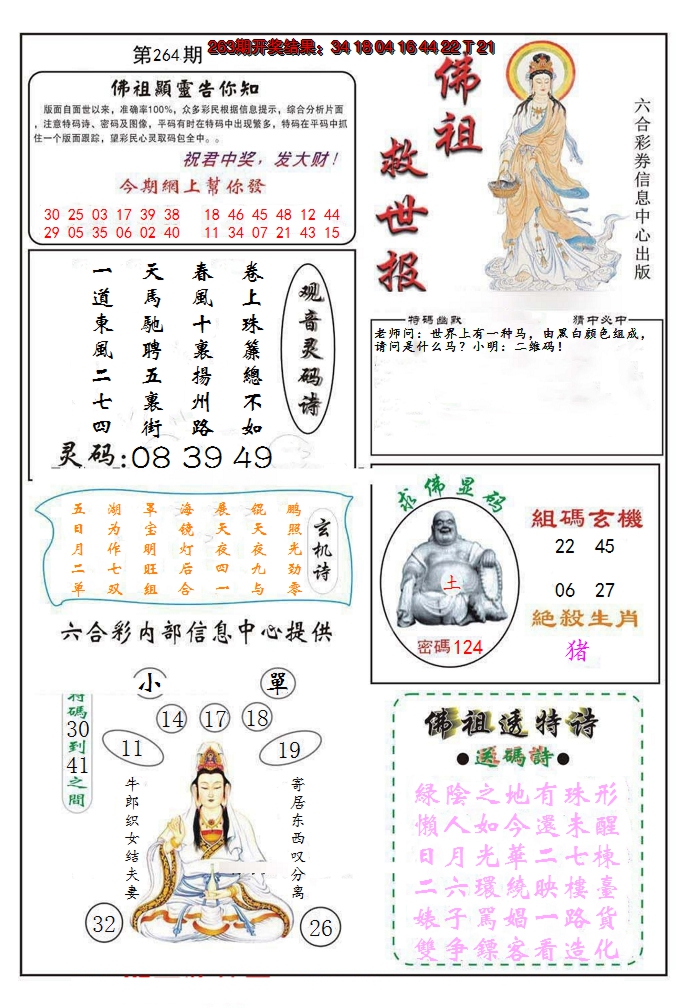 第264期
263期开奖结果：34 18 04 16 44 22 T 21
佛祖顯靈告你知
版面自面世以来，准确率100%，众多彩民根据信息提示，综合分析片面
，注意特码诗、密码及图像，平码有时在特码中出现繁多，特码在平码中抓
住一个版面跟踪，望彩民心灵取码包全中。。
祝君中奖，发大财！
今期網上幫你發
30 25 03 17 39 38 18 46 45 48 12 44
29 05 35 06 02 40 11 34 07 21 43 15
佛祖
救世报
六合彩券信息中心出版
观音灵码诗
卷上珠簾總不如
春風十裏揚州路
天馬馳聘五裏街
一道東風二七四
灵码:08 39 49
特碼幽默
猜中必中
老师问：世界上有一种马，由黑白颜色组成，
请问是什么马？小明：二维码！
玄机诗
鹏照光劲零
锟天夜九与
展天夜四一
海镜灯后合
罩宝明旺组
湖为作七双
五日月二单
六合彩内部信息中心提供
求佛显码
土
密碼124
組碼玄機
22 45
06 27
絕殺生肖
猪
小
單
特碼30到41之間
14
17
18
11
19
牛郎织女结夫妻
寄居东西叹分离
32
26
佛祖透特诗
●送碼詩●
緑陰之地有珠形
懶人如今還未醒
日月光華二七棟
二六環繞映樓臺
婊子罵娼一路貨
雙爭鏢客看造化